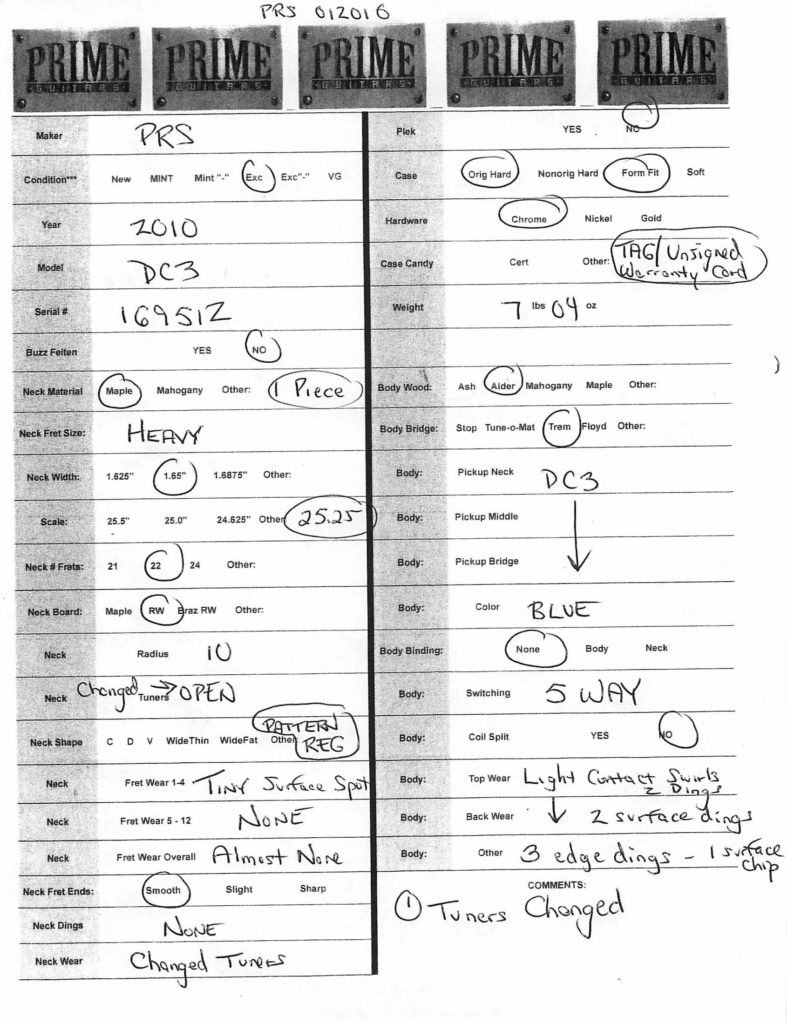 PRS 012016
PRIME GUITARS PRIME GUITARS PRIME GUITARS PRIME GUITARS PRIME GUITARS
Maker PRS
Condition*** New MINT Mint "-" Exc Exc"-" VG
Year 2010
Model DC3
Serial # 169512
Buzz Feiten YES NO
Neck Material Maple Mahogany Other: 1 Piece
Neck Fret Size: HEAVY
Neck Width: 1.625" 1.65" 1.6875" Other:
Scale: 25.5" 25.0" 24.625" Other 25.25
Neck # Frets: 21 22 24 Other:
Neck Board: Maple RW Braz RW Other:
Neck Radius 10
Neck Changed Tuners → OPEN
Neck Shape C D V WideThin WideFat Other PATTERN REG
Neck Fret Wear 1-4 TINY Surface Spot
Neck Fret Wear 5 - 12 NONE
Neck Fret Wear Overall Almost None
Neck Fret Ends: Smooth Slight Sharp
Neck Dings NONE
Neck Wear Changed Tuners
Plek YES NO
Case Orig Hard Nonorig Hard Form Fit Soft
Hardware Chrome Nickel Gold
Case Candy Cert Other: TAG/Unsigned
Warranty Card
Weight 7 lbs 04 oz
Body Wood: Ash Alder Mahogany Maple Other:
Body Bridge: Stop Tune-o-Mat Trem Floyd Other:
Body: Pickup Neck DC3
Body: Pickup Middle
Body: Pickup Bridge
Body: Color BLUE
Body Binding: None Body Neck
Body: Switching 5 WAY
Body: Coil Split YES NO
Body: Top Wear Light Contact Swirls
2 Dings
Body: Back Wear 2 surface dings
Body: Other 3 edge dings - 1 surface
chip
COMMENTS:
① Tuners Changed